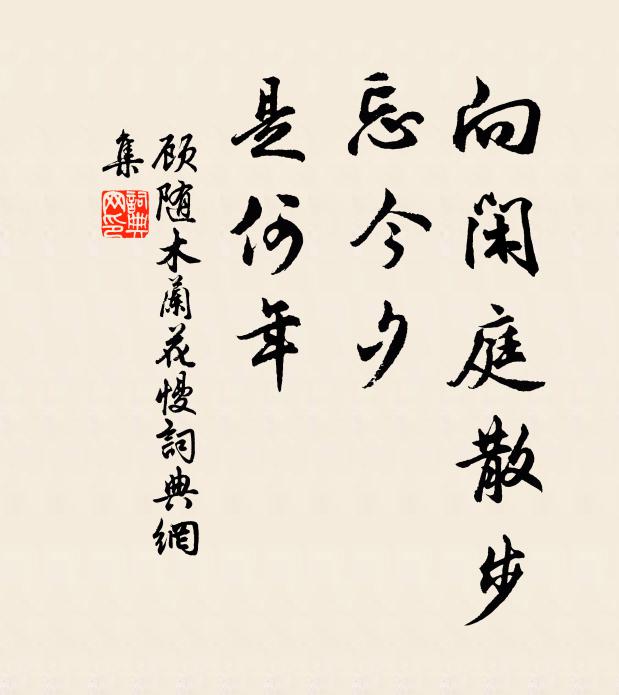 向闲庭散步
忘今夕
是何年
顾随木蘭花慢詞典網
集
詞典
网印